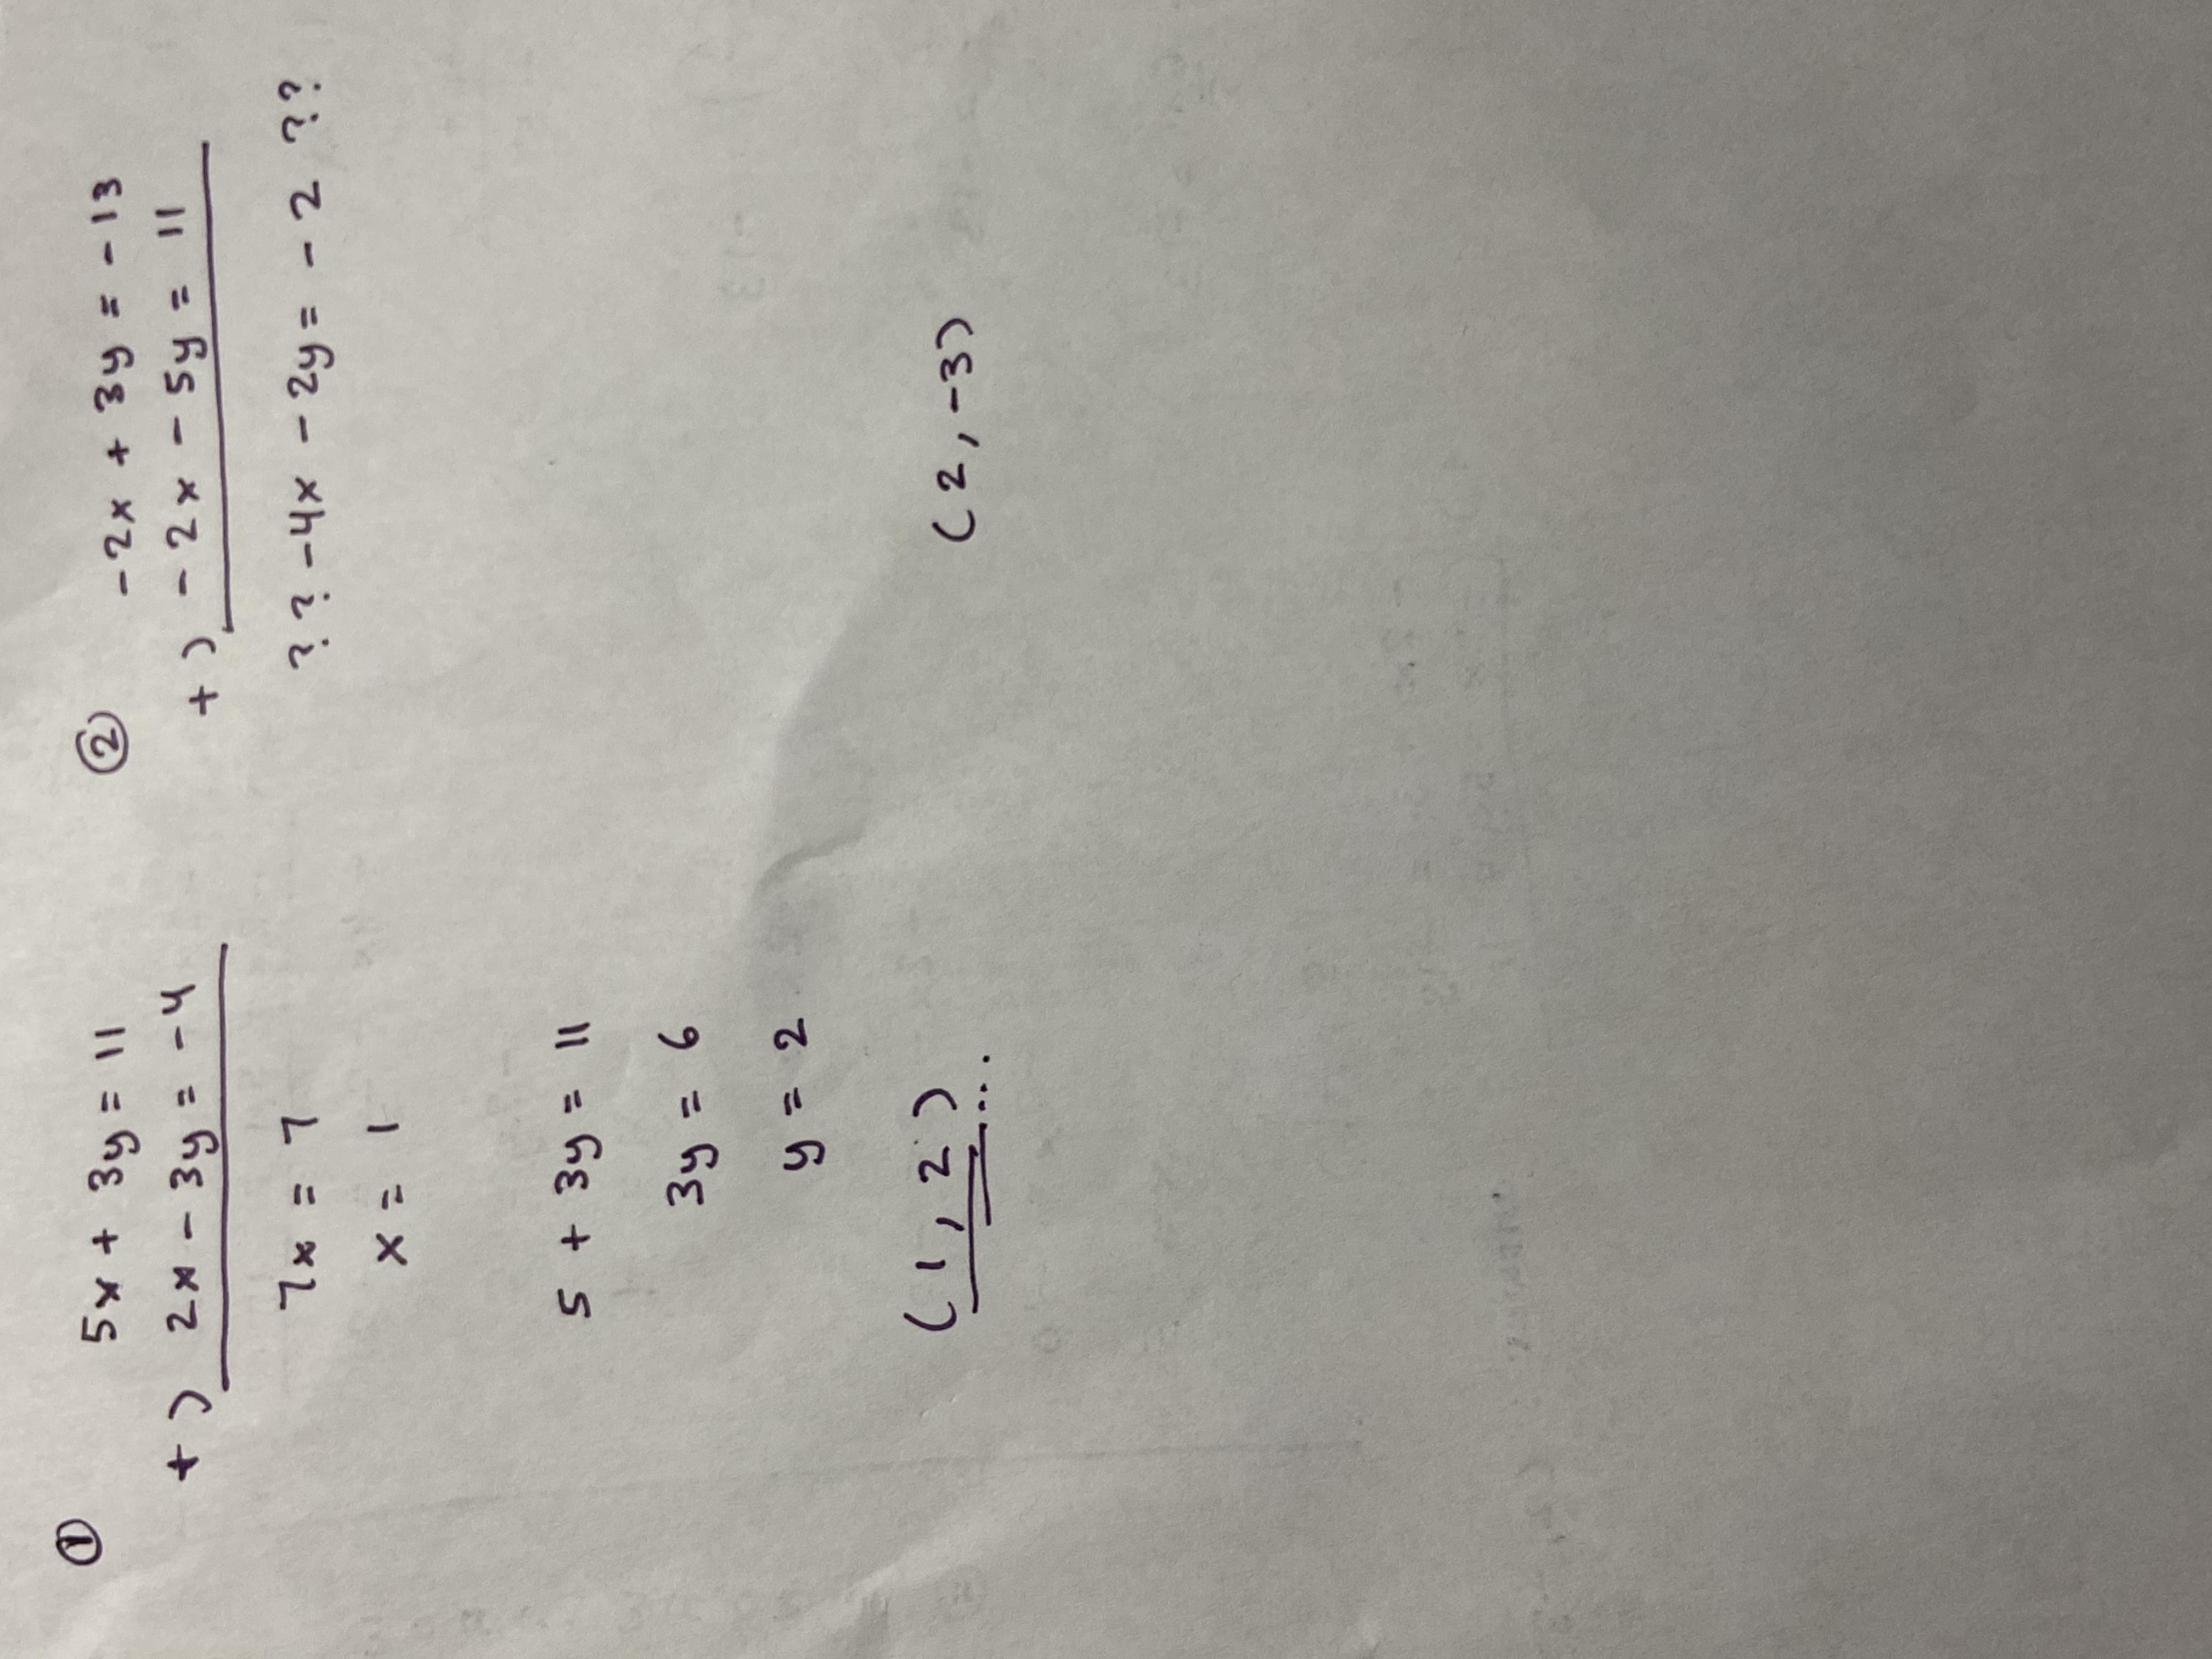 ①
5x + 3y = 11
+) 2x - 3y = -4
7x = 7
x = 1
5 + 3y = 11
3y = 6
y = 2
(1, 2)
②
-2x + 3y = -13
+) -2x - 5y = 11
?? -4x - 2y = -2 ??
(2, -3)